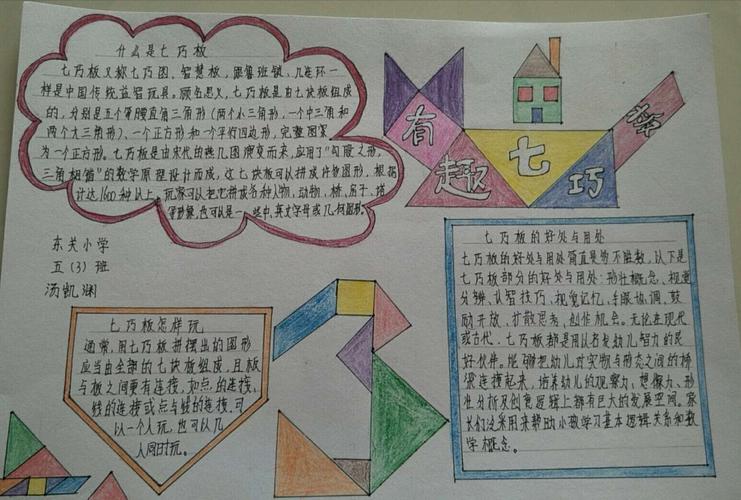 什么是七巧板
七巧板又称七巧图、智慧板,跟鲁班锁、九连环一
样是中国传统益智玩具。顾名思义,七巧板是由七块板组成
的,分别是五个等腰直角三角形(两个小三角形,一个中三角和
两个大三角形)、一个正方形和一个平行四边形,完整图案
为一个正方形。七巧板是由宋代的燕几图演变而来,应用了“勾股之形,
三角相错”的数学原理设计而成,这七块板可以拼成许多图形,根据
计达1600种以上,玩家可以把它拼成各种人物,动物,桥,房子,塔
等形象,也可以是一些中,英文字母或几何图形。
有趣七巧板
东关小学
五(3)班
汤凯渊
七巧板怎样玩
通常,用七巧板拼摆出的图形
应当由全部的七块板组成,且板
与板之间要有连接,如点的连接,
线的连接或点与线的连接,可
以一个人玩,也可以几
人同时玩。
七巧板的好处与用处
七巧板的好处与用处简直是数不胜数,以下是
七巧板部分的好处与用处:形状概念、视觉
分辨、认智技巧、视觉记忆、手眼协调、鼓
励开放、扩散思考、创作机会。无论在现代
或古代,七巧板都是用以启发幼儿智力的良
好伙伴。能够把幼儿对实物与形态之间的桥
梁连接起来,培养幼儿的观察力、想像力、形
状分析及创意逻辑上都有巨大的发展空间。家
长们这采用来帮助小教学习基本逻辑关系和数
学概念。